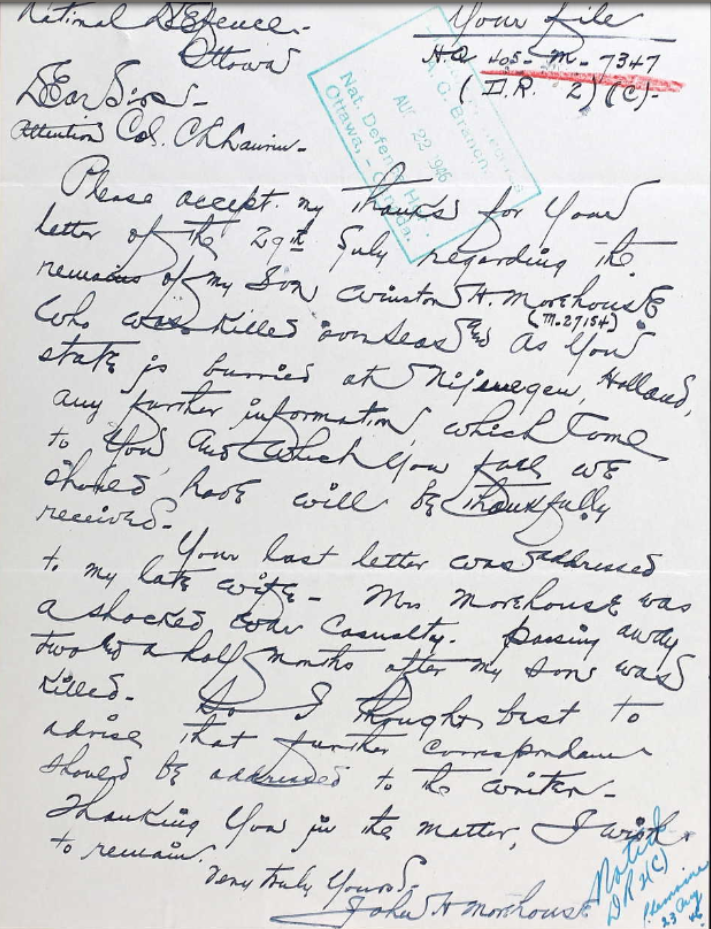 National Defence.-
Ottawa
Your File
H.Q 405- M- 7347
(D.R. 2) (C)-
Dear Sirs-
Attention Col.
A. G. Branch
AUG 22 1946
Nat. Defence
Ottawa, - Canada.
Please accept my thanks for your
letter of the 29th July regarding the
remains of my Son Winston H. Morehouse
(M-27154)
who was killed overseas and as you
state is burried at Nijmegen, Holland,
any further information, which come
to you and which you feel we
should have will be thankfully
received-
Your last letter was addressed
to my late wife- Mrs Morehouse was
a shocked war casualty. passing away
two and a half months after my son was
killed- So I thought best to
advise that further correspondence
should be addressed to the writer-
Thanking you in the matter, I wish
to remain.
Very truly yours-
John H Morehouse
Noted
DR 2(C)
23 Aug
46